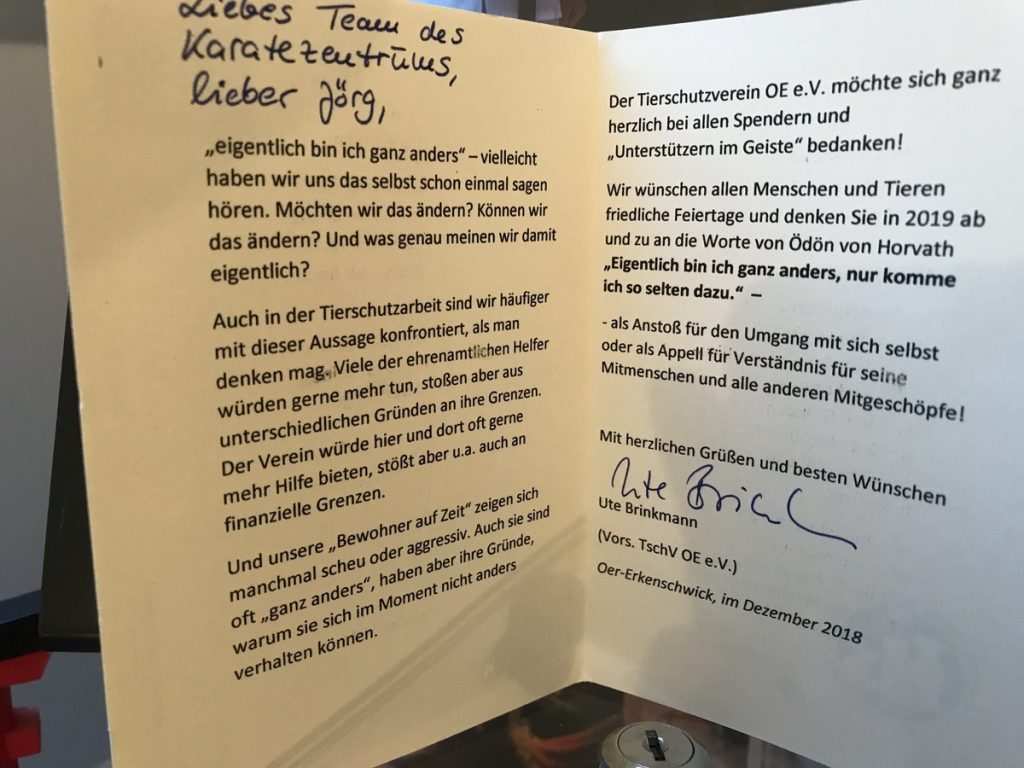 Liebes Team des
Karatezentrums,
lieber Jörg,
„eigentlich bin ich ganz anders“ – vielleicht
haben wir uns das selbst schon einmal sagen
hören. Möchten wir das ändern? Können wir
das ändern? Und was genau meinen wir damit
eigentlich?
Auch in der Tierschutzarbeit sind wir häufiger
mit dieser Aussage konfrontiert, als man
denken mag. Viele der ehrenamtlichen Helfer
würden gerne mehr tun, stoßen aber aus
unterschiedlichen Gründen an ihre Grenzen.
Der Verein würde hier und dort oft gerne
mehr Hilfe bieten, stößt aber u.a. auch an
finanzielle Grenzen.
Und unsere „Bewohner auf Zeit“ zeigen sich
manchmal scheu oder aggressiv. Auch sie sind
oft „ganz anders“, haben aber ihre Gründe,
warum sie sich im Moment nicht anders
verhalten können.
Der Tierschutzverein OE e.V. möchte sich ganz
herzlich bei allen Spendern und
„Unterstützern im Geiste“ bedanken!
Wir wünschen allen Menschen und Tieren
friedliche Feiertage und denken Sie in 2019 ab
und zu an die Worte von Ödön von Horvath
„Eigentlich bin ich ganz anders, nur komme
ich so selten dazu.“ –
- als Anstoß für den Umgang mit sich selbst
oder als Appell für Verständnis für seine
Mitmenschen und alle anderen Mitgeschöpfe!
Mit herzlichen Grüßen und besten Wünschen
Ute Brinkmann
(Vors. TschV OE e.V.)
Oer-Erkenschwick, im Dezember 2018